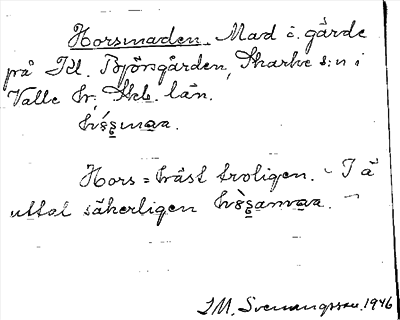 Horsmaden. Mad i gärde
på Id. Björsgården, Skarke s:n i
Valle hr, Skb. län.
Hors = häst troligen. - I ä
uttal säkerligen
I.M. Svenungsson. 1946